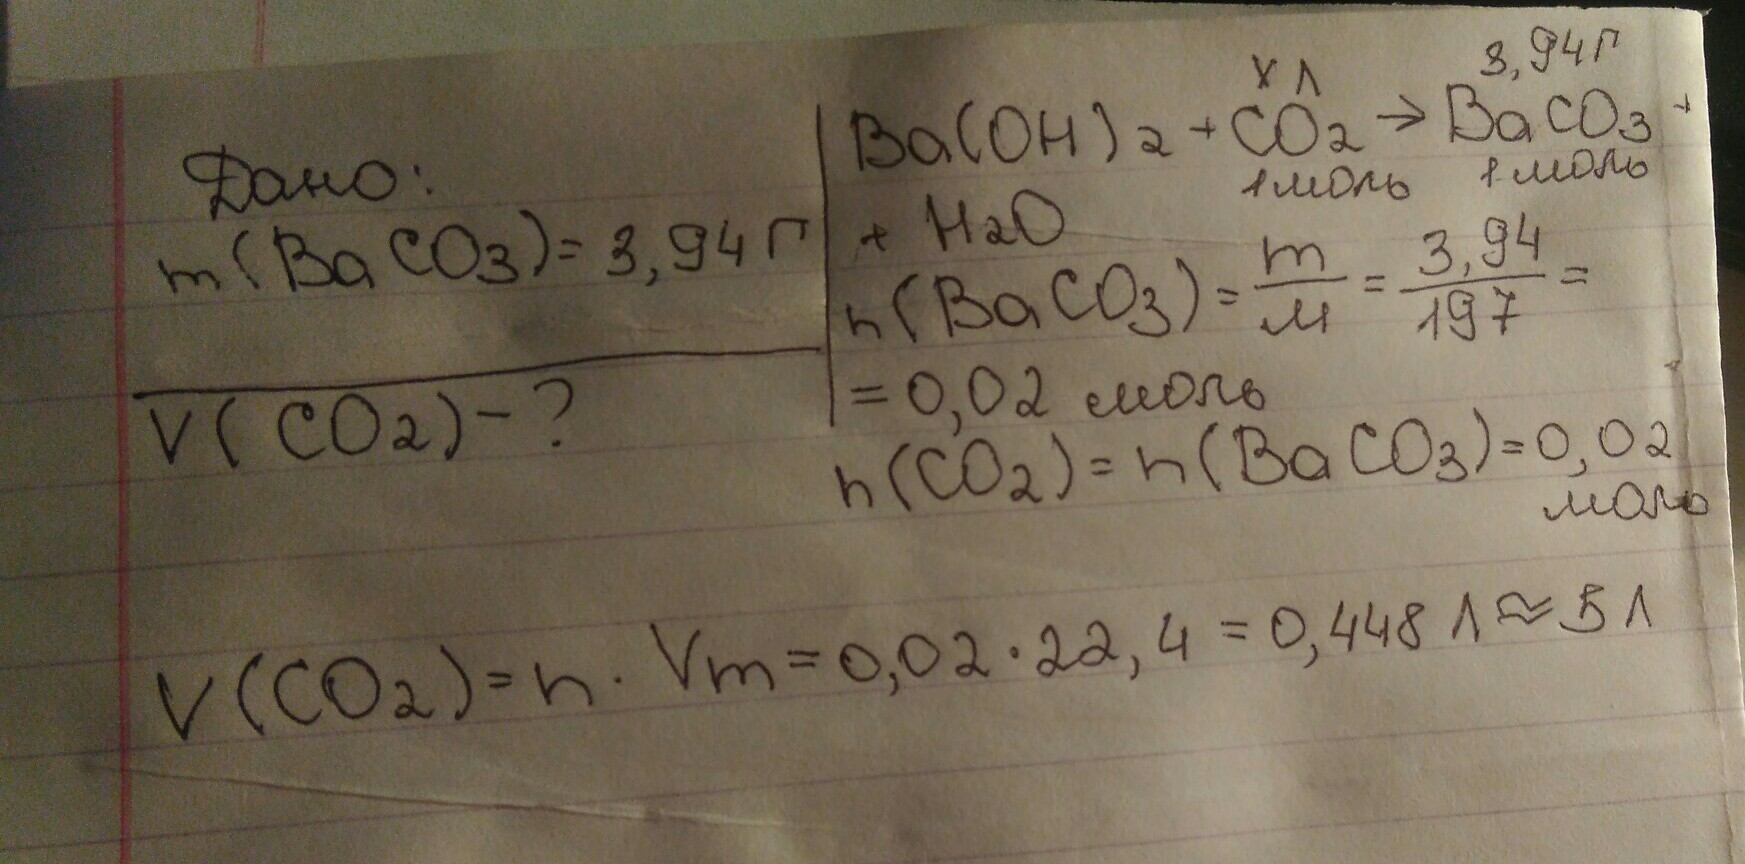 Дано:
m(BaCO3)=3,94г
V(CO2)-?
х л
3,94г
Ba(OH)2+CO2→BaCO3+
1моль 1моль
+ H2O
n(BaCO3)=m/M=3,94/197=
=0,02 моль
n(CO2)=n(BaCO3)=0,02
моль
V(CO2)=n·Vm=0,02·22,4=0,448 л≈5 л